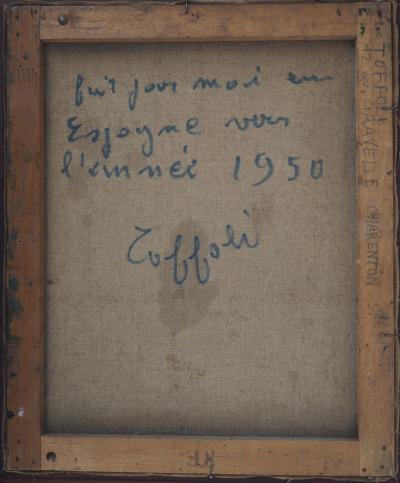 fait par moi en
Espagne vers
l'année 1950
Toffoli
TOFFOLI
GRAVELLE CHARENTON
18